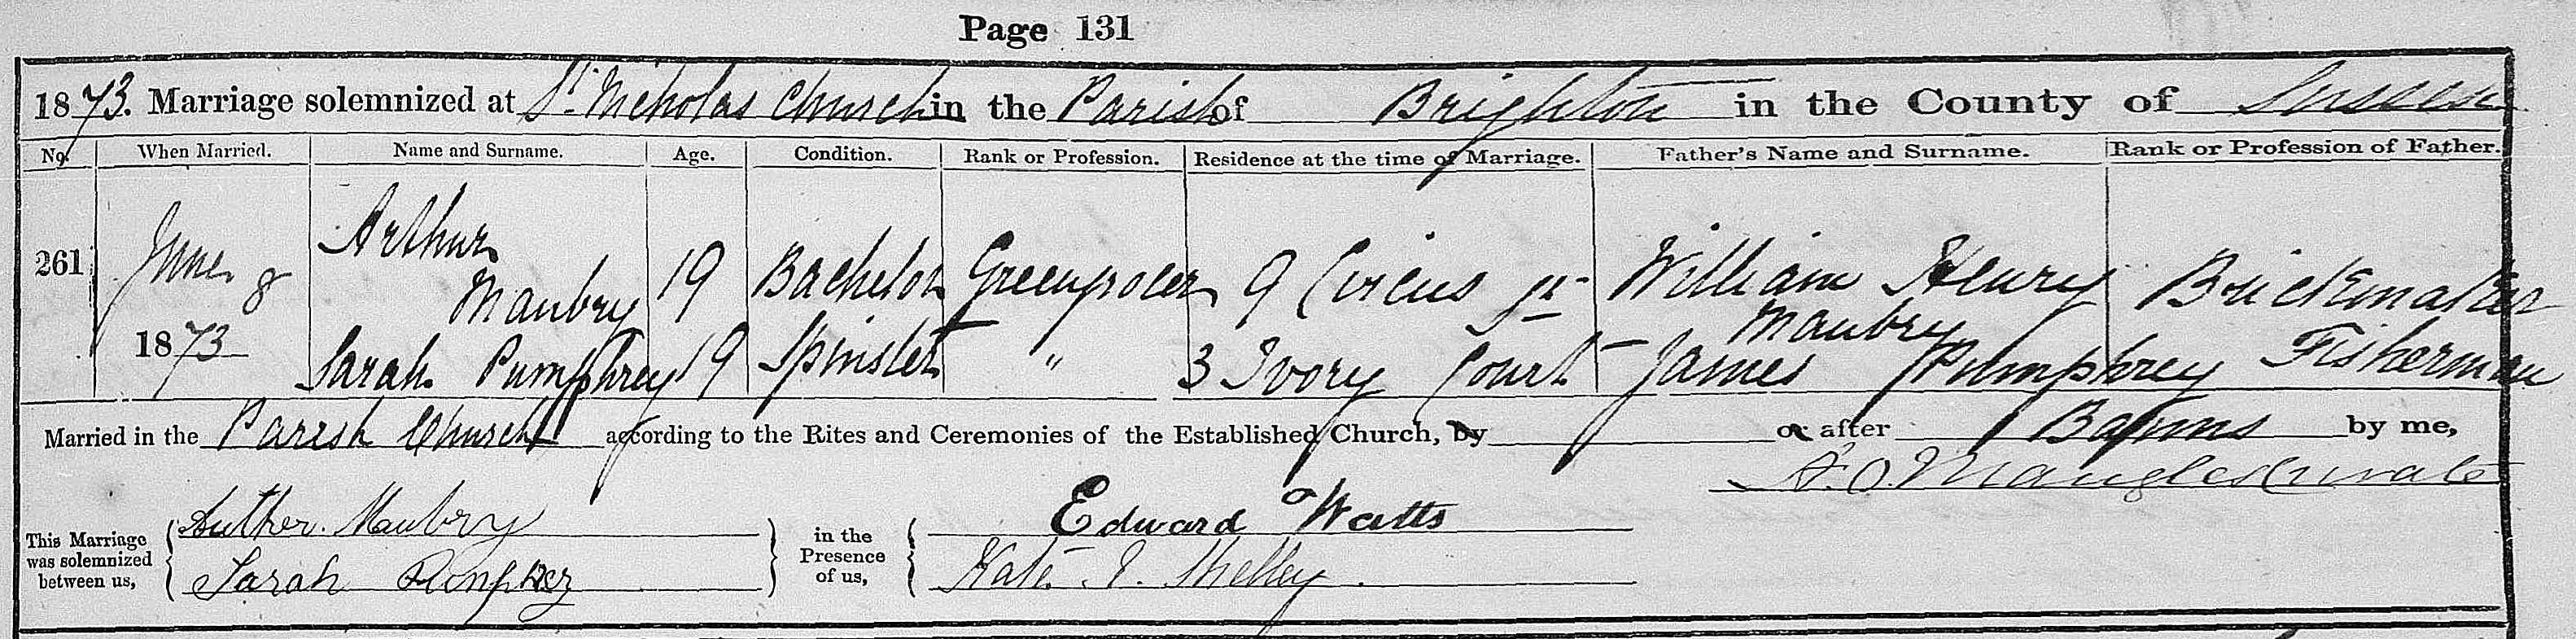 Page 131
1873. Marriage solemnized at St. Nicholas Church in the Parish of Brighton in the County of Sussex
No. When Married. Name and Surname. Age. Condition. Rank or Profession. Residence at the time of Marriage. Father's Name and Surname. Rank or Profession of Father.
261 June 8 1873 Arthur Maubry 19 Bachelor Greengrocer 9 Circus St William Henry Maubry Brickmaker
Sarah Pumphrey 19 Spinster " 3 Ivory Court James Pumphrey Fisherman
Married in the Parish Church according to the Rites and Ceremonies of the Established Church, by or after Banns by me,
A. O. Mangles Curate
This Marriage was solemnized between us, Auther. Maubry in the Presence of us, Edward Watts
Sarah Kate. I. Shelley.